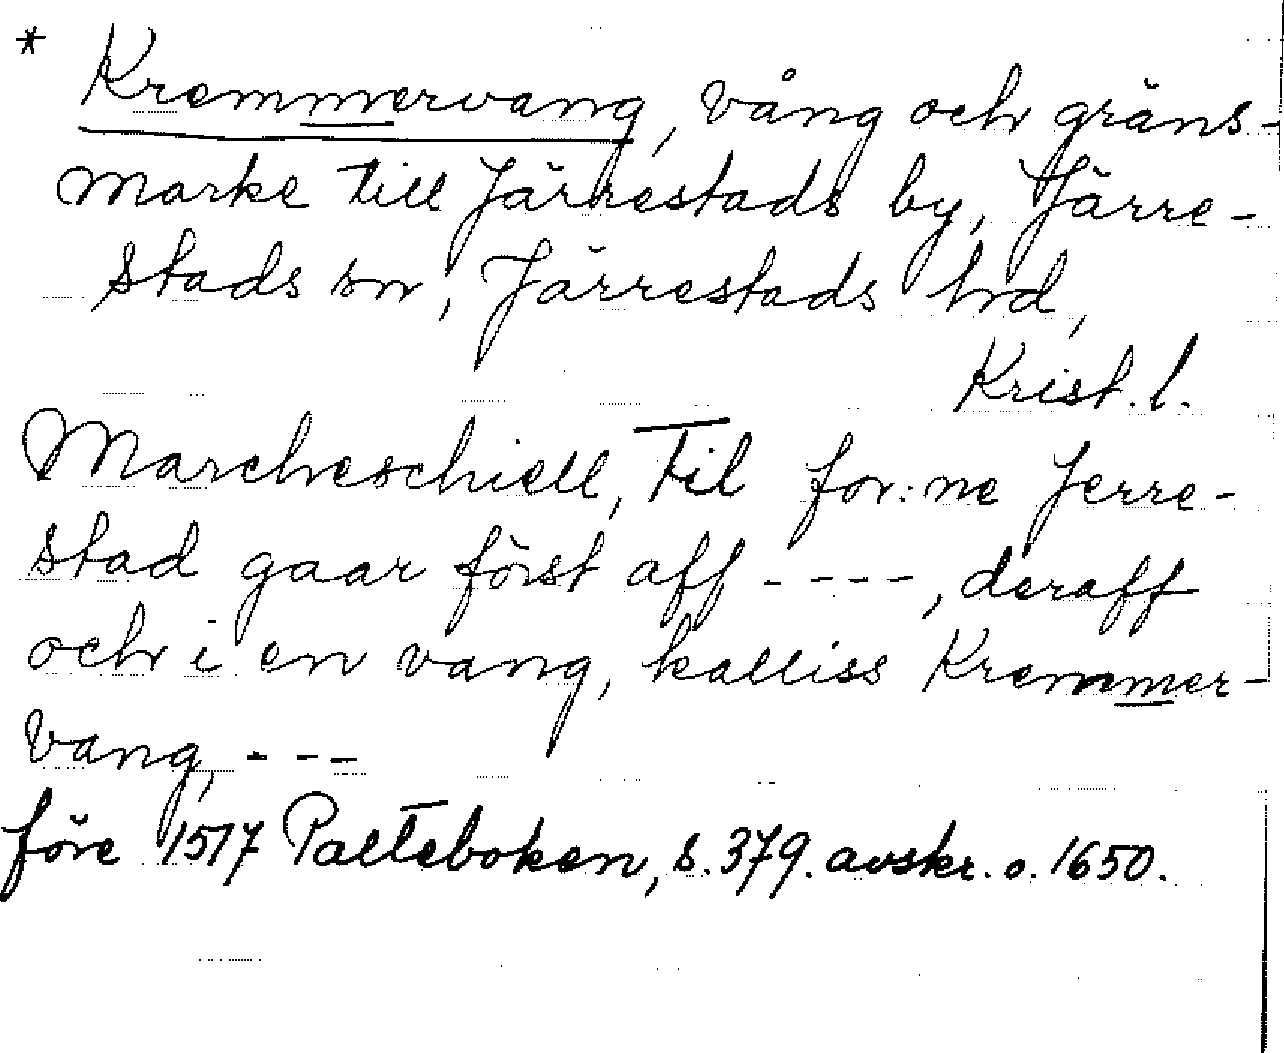 * Kremmervang, vång och gräns-
marke till Järrestads by, Järre-
stads sn, Järrestads hd,
Krist. l.
Marcheschiell, Til for:ne Jerre-
stad gaar först aff ----, deraff
och i en vang, kalliss Kremmer-
vang, ---
före 1517 Palteboken, s. 379. avskr. o. 1650.